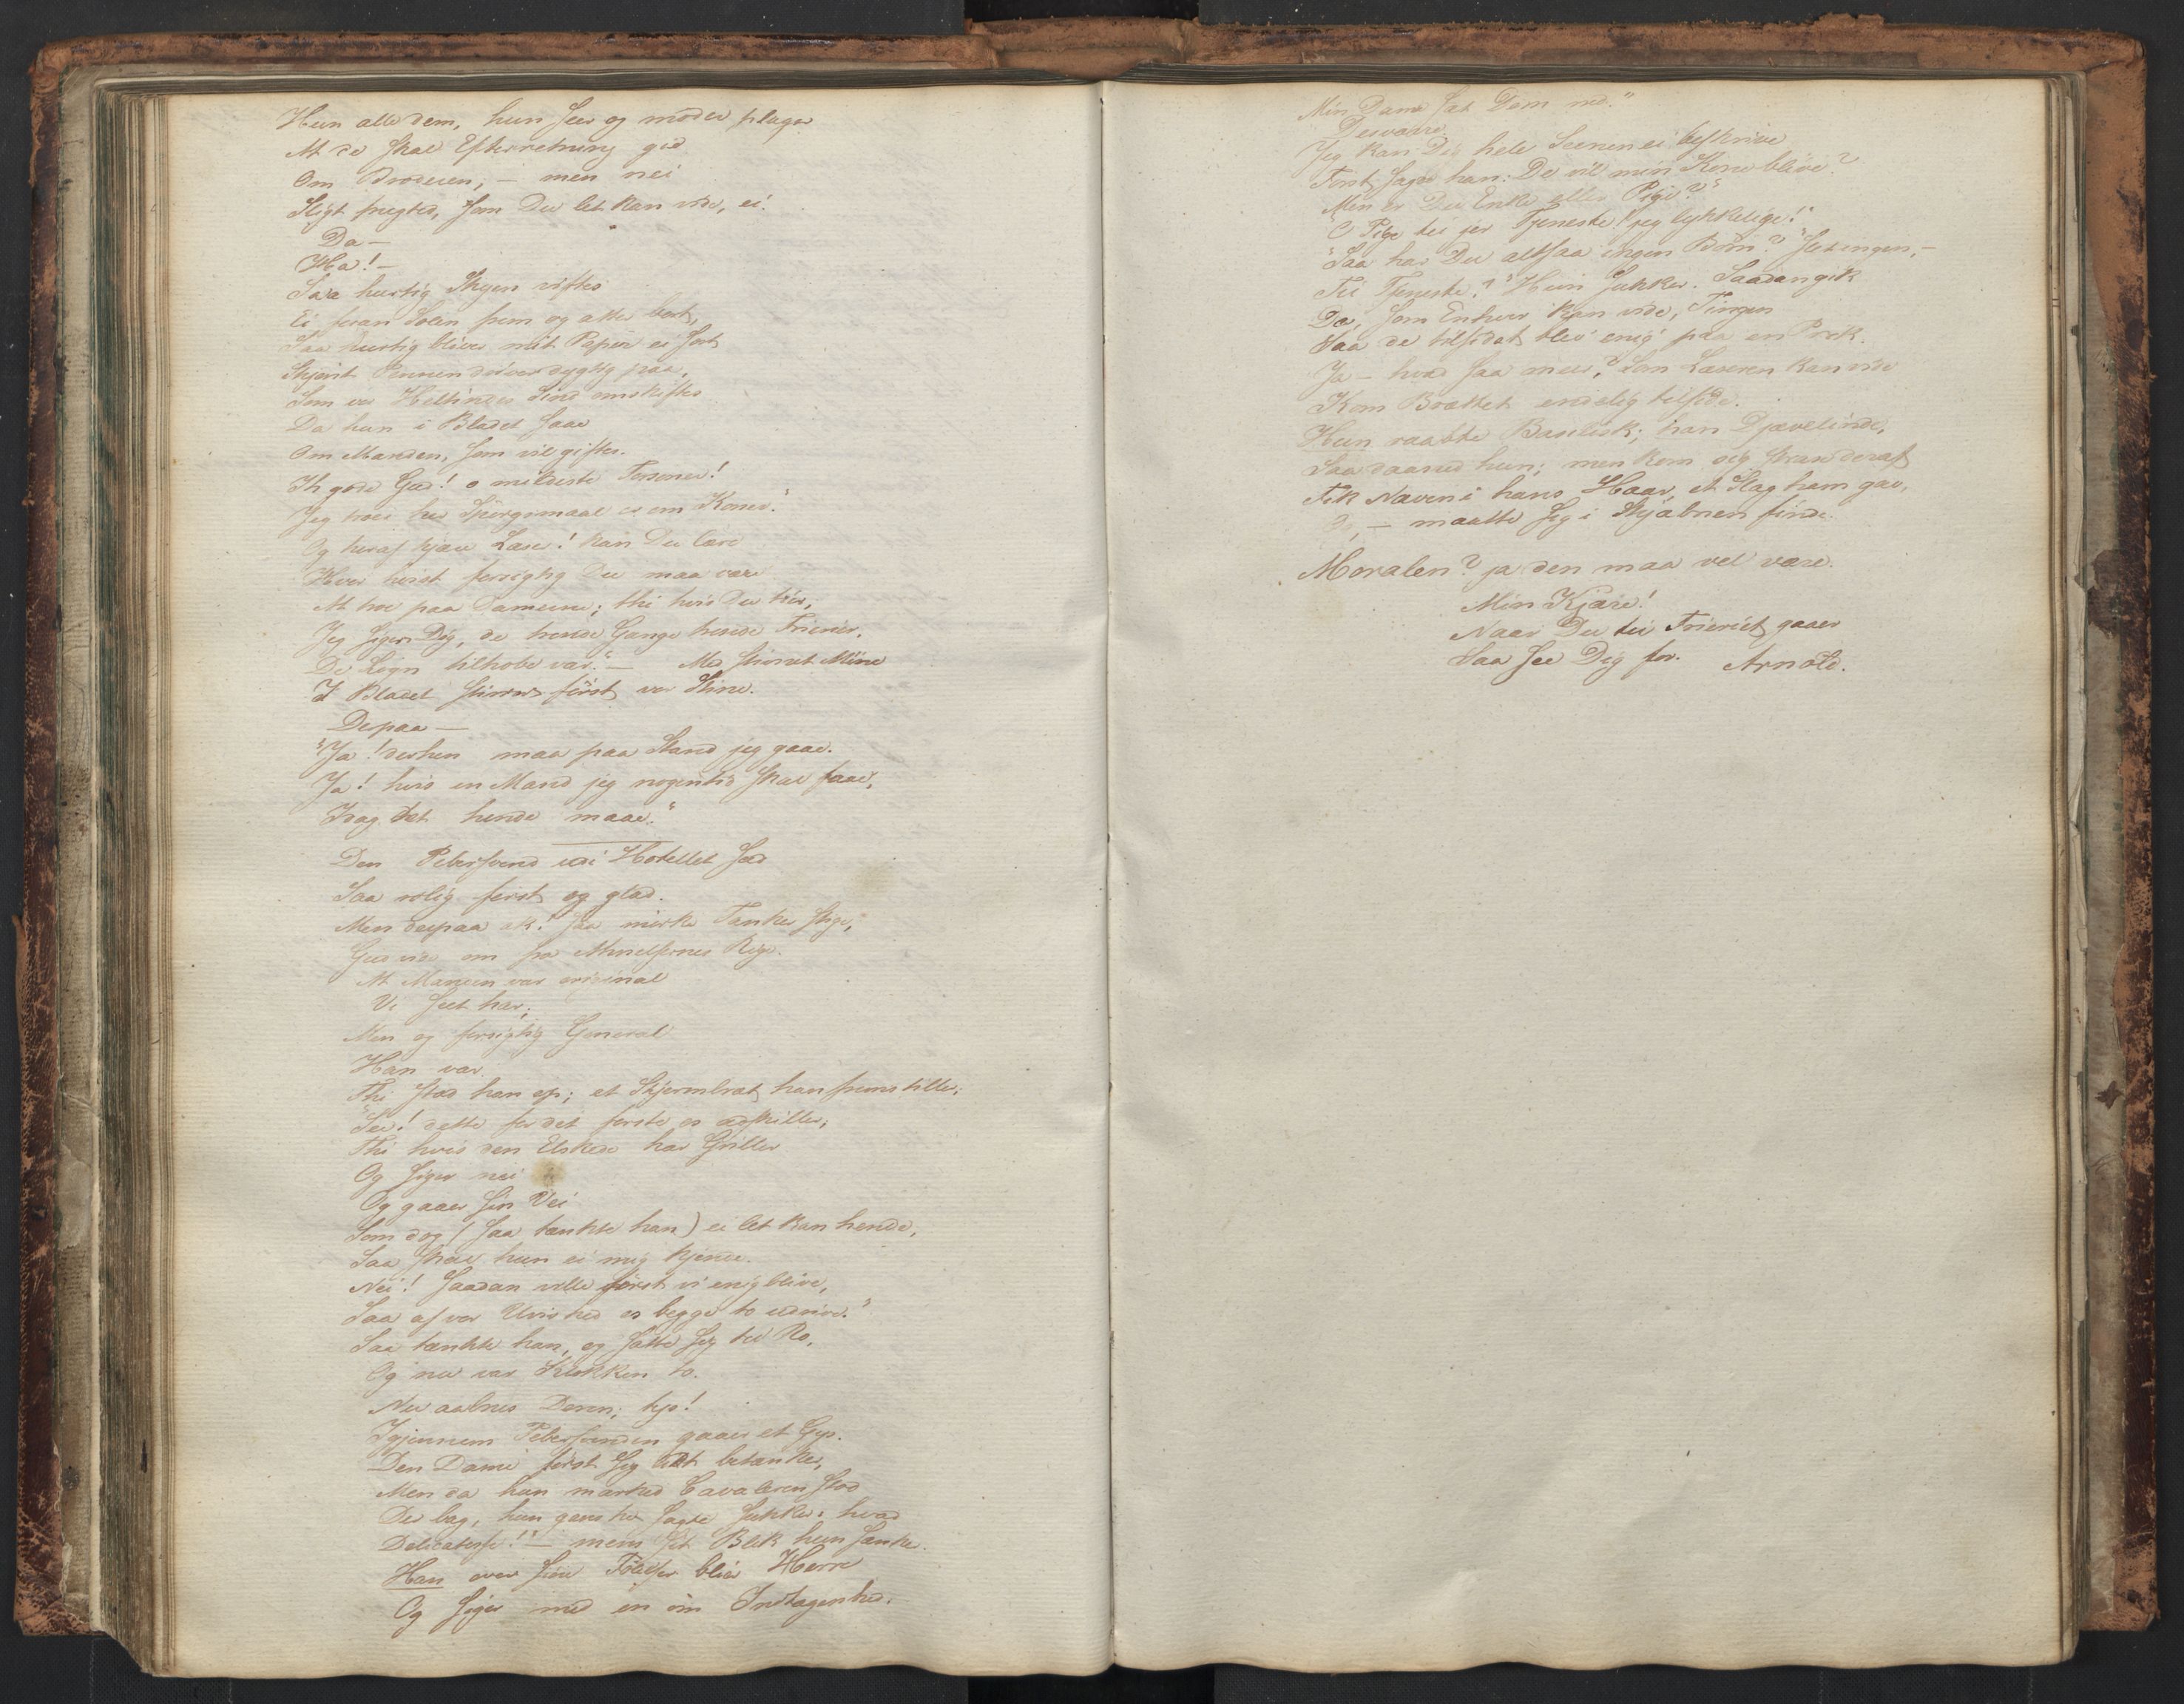 Hun alle dem, hun seer og møder plager
At de skal Efterretning gid
Om Broderen, – men nei
Sligt frugted, som Du let kan vide, ei.
Da –
Ha! –
Saa hurtig Skyen viftes
Ei foran Solen frem og atter bort,
Saa hurtig bliver mit Papir ei sort
Skjønt Pennen derover dygtig paa,
Som vor Heltindes Sind omskiftes
Da hun i Bladet saae
Om Manden, som vil giftes.
Ih gode Gud! o mildeste Personer!
Jeg troer her Spørgsmaal er om Koner."
Og heraf kjære Læser! kan Du lære
Hvor høist forsigtig Du maa være
At troe paa Damerne; thi hvis Du troer,
Jeg siger Dig, de tusinde Gange tusinde Frierier,
De Løgn tilhobe var." – Med stirret Mine
I Bladet stirrer først vor Stine.
Derpaa –
"Ja! derhen maa paa Stand jeg gaae.
Ja! hvis en Mand jeg nogentid skal faae,
Idag det hende maae."
Den Pebersvend udi Hotellet sad
Saa rolig først og glad.
Men derpaa ak! saa mørke Tanker stige,
Gud vide om fra Rige.
At Manden var original
Vi seet har;
Men og forsigtig General
Han var.
Thi stod han op; et Skjermbræt han frems tiller;
"See! dette for det første os adskiller;
Thi hvis den Elskede har Griller
Og siger nei
Og gaaer sin Vei
Som dog (saa tænkte han) ei let kan hende,
Saa skal hun ei mig kjende.
Nei! saadan ville først vi enig blive,
Saa af vor Uvished os begge to uddrive."
Saa tænkte han, og satte sig til Ro,
Og nu var Klokken to.
Nu aabnes Døren; tys!
Igjennem Pebersvenden gaaer et Gys.
Den Dame først sig lidt betænker,
Men da hun mærked Cavaleren stod
Der bag, hun ganske sagte sukker: hvad
Delicatesse!" – mens sit Blik hun sænker.
Han over sin bliver Herre
Og siger med en øm Indtagenhed.
Min Dame sæt Dem ned."
Desværre
Jeg kan Dig hele Scenen ei beskrive
Først sagde han: De vil min Kone blive?
Men er Du Enke eller Pige?"
O Pige til jer Tjeneste! jeg lykkelige!"
"Saa har Du altsaa ingen Børn?" "Slet ingen, –
Til Tjeneste!" Hun sukker. Saadan gik
Da, som Enhver kan vide, Tingen
Saa de tilsidst blev enig paa en Prik.
Ja – hvad saa meer? Som Læseren kan vide
Kom Brættet endelig tilside.
Hun raabte Basilisk; han Djævelinde,
Saa daaned hun; men kom sig strax deraf
Fik Næven i hans Haar, et Slag ham gav,
– maatte sig i Skjæbnen finde.
Moralen? ja den maa vel være.
Min Kjære!
Naar Du til Frieriet gaaer
Saa see Dig for. Arnold.